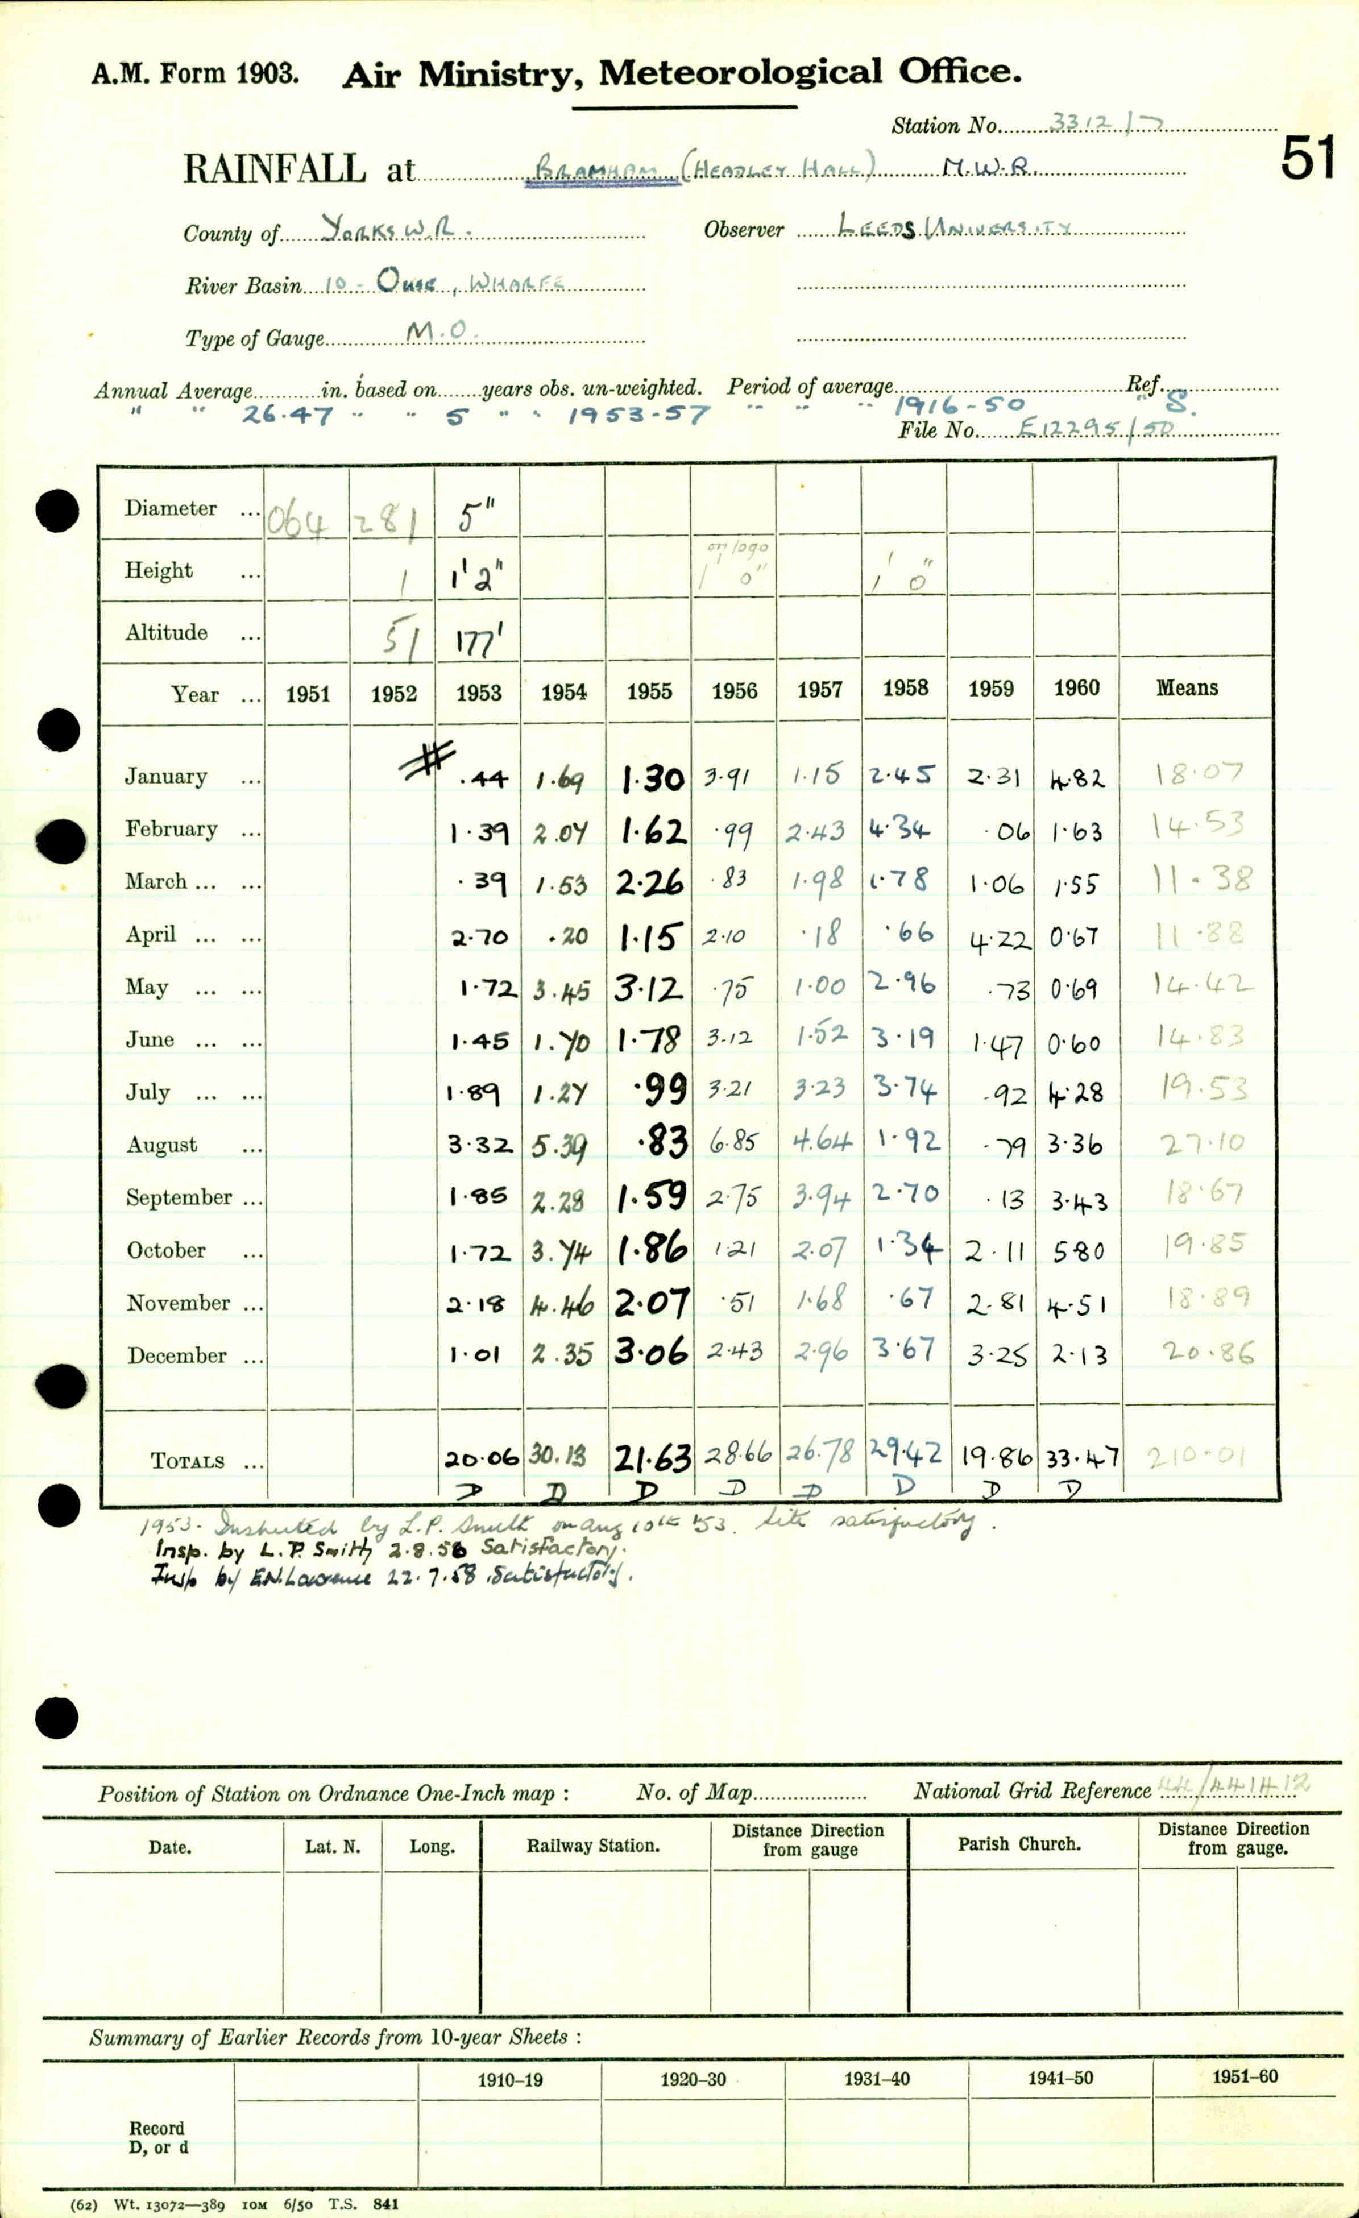 A.M. Form 1903. Air Ministry, Meteorological Office.
Station No. 3312/7
51
RAINFALL at BRAMHAM (HEADLEY HALL) M.W.R.
County of YORKS W.R. Observer LEEDS UNIVERSITY
River Basin 10 - OUSE, WHARFE
Type of Gauge M.O.
Annual Average in. based on years obs. un-weighted. Period of average Ref.
" " 26.47 " " 5 " " 1953-57 " " " 1916-50 " S.
File No. E12295/50
Diameter ... 064 281 5"
Height ... 1 1'2" 1' 0" 1' 0"
Altitude ... 51 177'
Year ... 1951 1952 1953 1954 1955 1956 1957 1958 1959 1960 Means
January ... .44 1.69 1.30 3.91 1.15 2.45 2.31 4.82 18.07
February ... 1.39 2.04 1.62 .99 2.43 4.34 .06 1.63 14.53
March ... ... .39 1.53 2.26 .83 1.98 1.78 1.06 1.55 11.38
April ... ... 2.70 .20 1.15 2.10 .18 .66 4.22 0.67 11.88
May ... ... 1.72 3.45 3.12 .75 1.00 2.96 .73 0.69 14.42
June ... ... 1.45 1.70 1.78 3.12 1.52 3.19 1.47 0.60 14.83
July ... ... 1.89 1.27 .99 3.21 3.23 3.74 .92 4.28 19.53
August ... 3.32 5.39 .83 6.85 4.64 1.92 .79 3.36 27.10
September ... 1.85 2.28 1.59 2.75 3.94 2.70 .13 3.43 18.67
October ... 1.72 3.74 1.86 1.21 2.07 1.34 2.11 5.80 19.85
November ... 2.18 4.46 2.07 .51 1.68 .67 2.81 4.51 18.89
December ... 1.01 2.35 3.06 2.43 2.96 3.67 3.25 2.13 20.86
TOTALS ... 20.06 30.13 21.63 28.66 26.78 29.42 19.86 33.47 210.01
D D D D D D D D
1953. Instructed by L.P. Smith on Aug 10th '53. Site satisfactory.
Insp. by L.P. Smith 2.8.56 Satisfactory.
Insp by E.N. Lawrence 22.7.58 Satisfactory.
Position of Station on Ordnance One-Inch map : No. of Map National Grid Reference 44/441412
Date. Lat. N. Long. Railway Station. Distance Direction from gauge Parish Church. Distance Direction from gauge.
Summary of Earlier Records from 10-year Sheets :
1910–19 1920–30 1931–40 1941–50 1951–60
Record
D, or d
(62) Wt. 13072—389 10M 6/50 T.S. 841